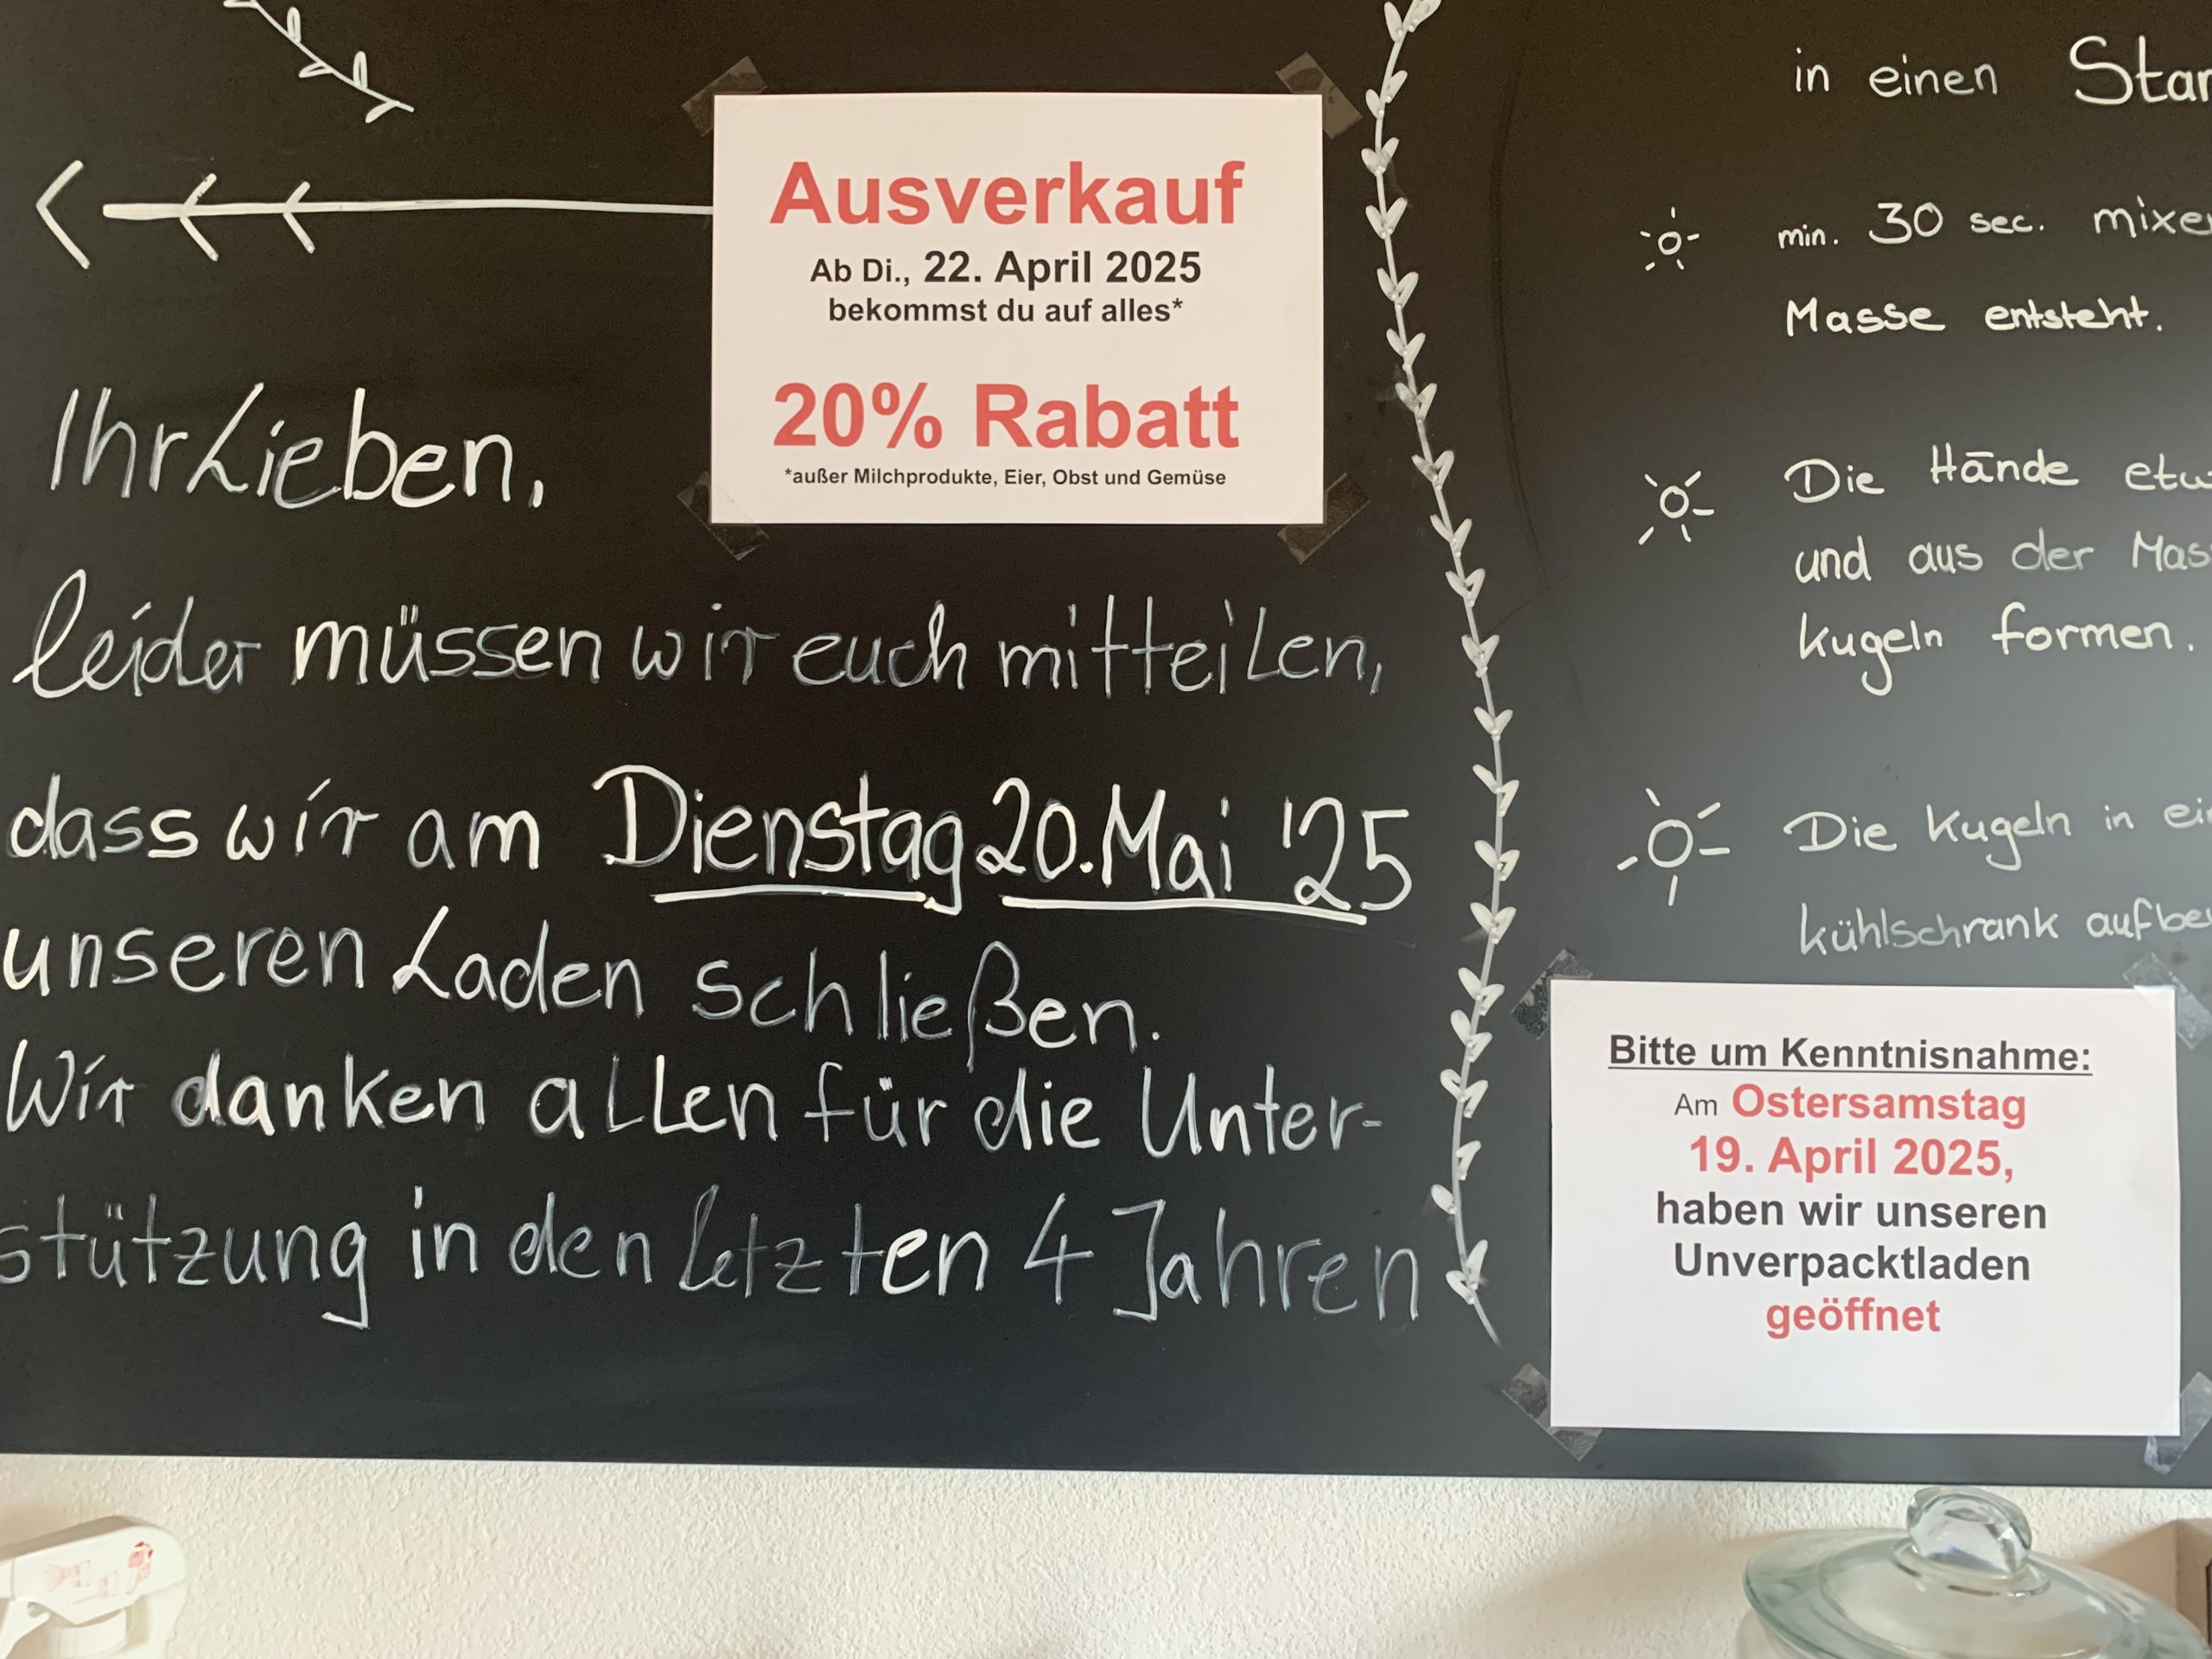 Ausverkauf
Ab Di., 22. April 2025
bekommst du auf alles*
20% Rabatt
*außer Milchprodukte, Eier, Obst und Gemüse
Ihr Lieben,
leider müssen wir euch mitteilen,
dass wir am Dienstag 20. Mai '25
unseren Laden schließen.
Wir danken allen für die Unter-
stützung in den letzten 4 Jahren
in einen
min. 30 sec.
Masse entsteht.
Die Hände
und aus der
Kugeln formen.
Die Kugeln in
Kühlschrank
Bitte um Kenntnisnahme:
Am Ostersamstag
19. April 2025,
haben wir unseren
Unverpacktladen
geöffnet